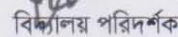 বিদ্যালয় পৰিদৰ্শক